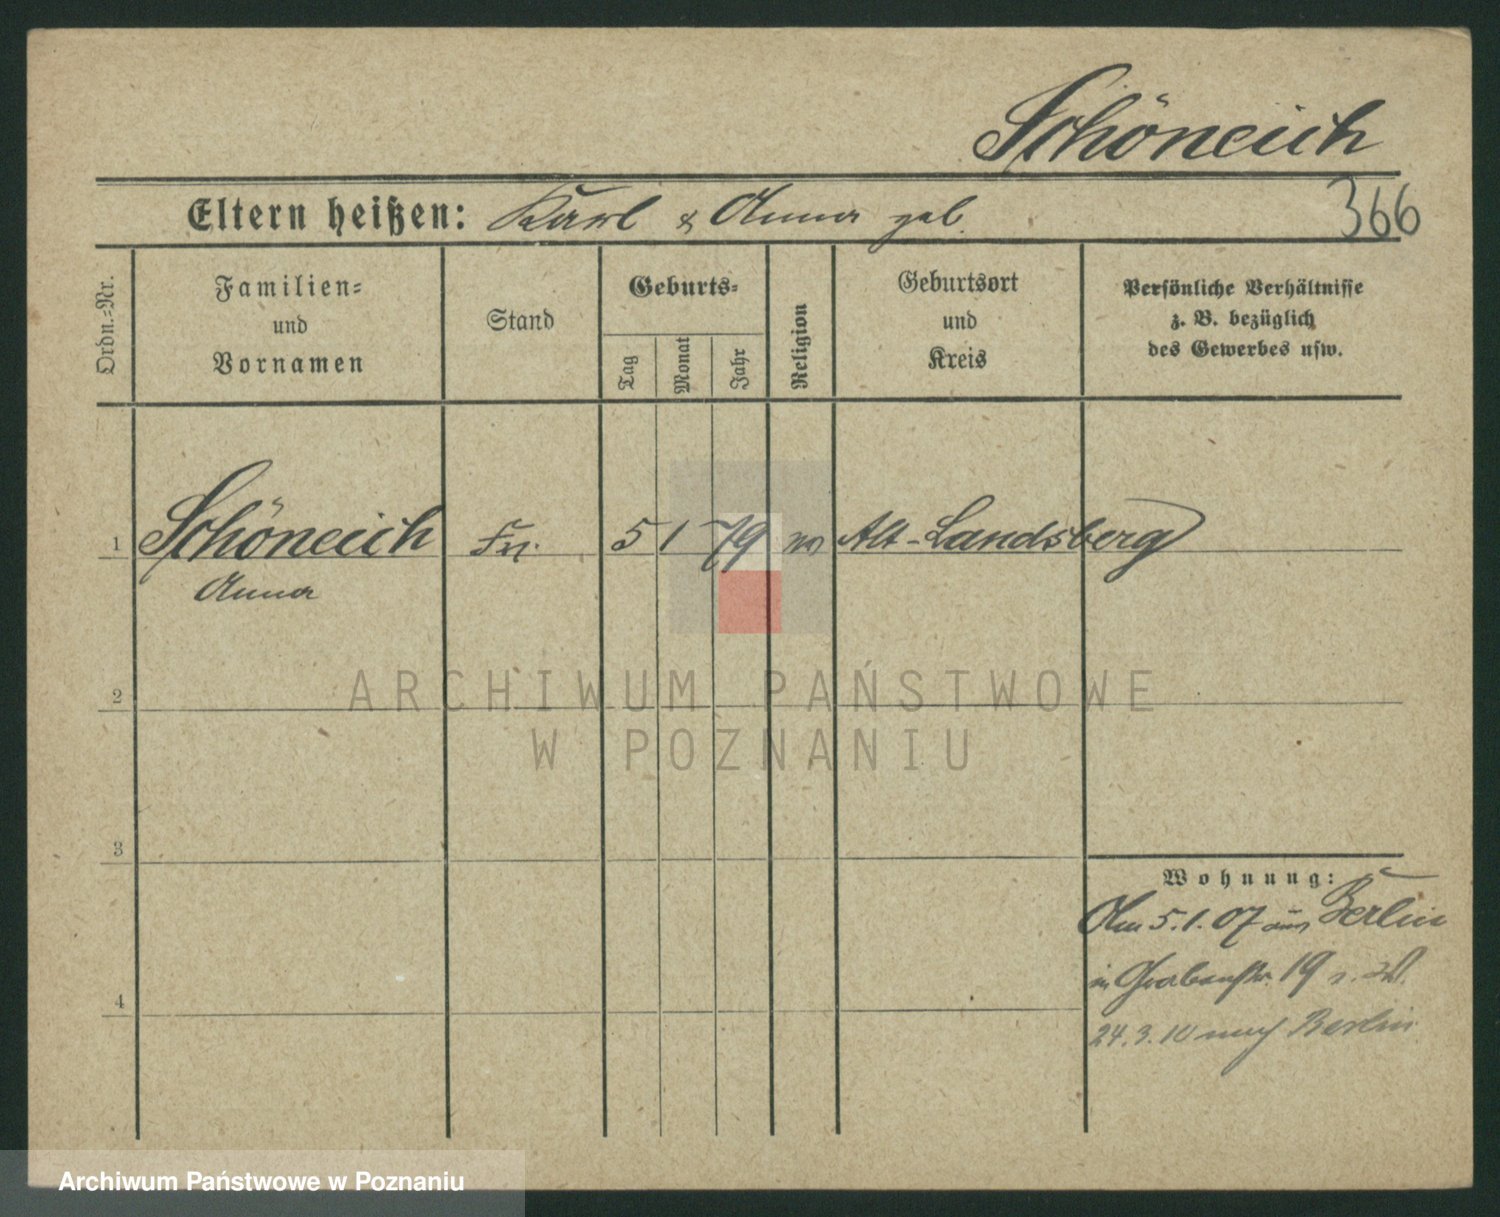 Schöneich
Eltern heißen: Karl & Anna geb.
366
Ordn.=Nr.
Familien=
und
Vornamen
Stand
Geburts=
Tag
Monat
Jahr
Religion
Geburtsort
und
Kreis
Persönliche Verhältnisse
z. B. bezüglich
des Gewerbes usw.
1 Schöneich 5 1 79 Alt-Landsberg
Anna
2
3
4
Wohnung:
Am 5.1.07 aus Berlin
in Grabenstr. 19
24.3.10 nach Berlin
ARCHIWUM PAŃSTWOWE
W POZNANIU
Archiwum Państwowe w Poznaniu